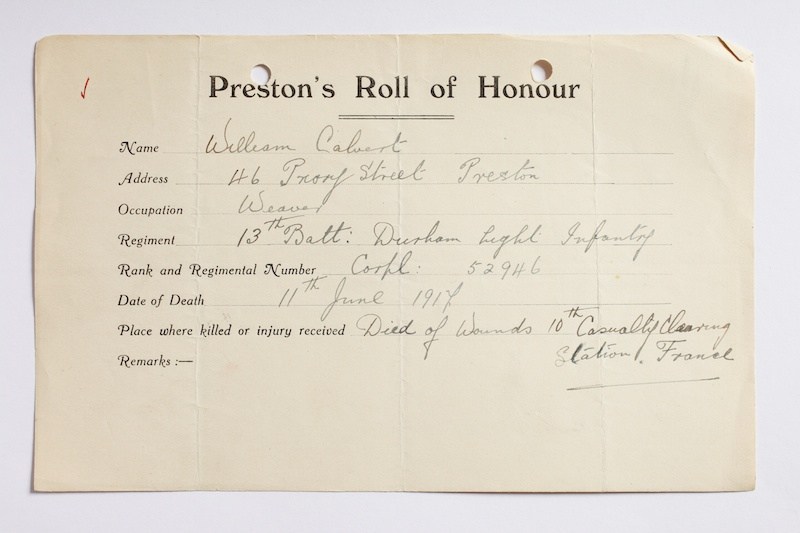 Preston's Roll of Honour
Name William Calvert
Address 46 Priory Street Preston
Occupation Weaver
Regiment 13th Batt: Durham Light Infantry
Rank and Regimental Number Corpl: 52946
Date of Death 11th June 1917
Place where killed or injury received Died of Wounds 10th Casualty Clearing
Remarks :— Station, France